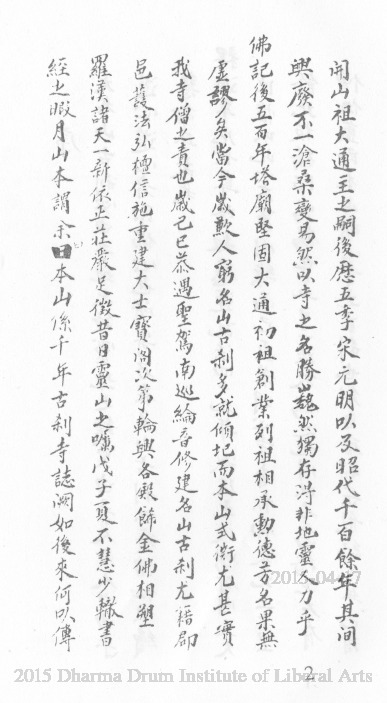 開山祖大通主之嗣後歷五季宋元明以及昭代千百餘年其间
興廢不一滄桑變易然以寺之名勝巍然獨存得非地靈人力乎
佛記後五百年塔廟堅固大通初祖創業列祖相承勳德芳名果無
虛謬矣當今歲歉人窮名山古剎多就傾圮而本山式微尤甚實
我寺僧之責也歲己巳恭遇聖駕南巡綸音修建名山古剎尤藉郡
邑護法弘檀信施重建大士寶阁次第輪興各殿飾金佛相塑
羅漢諸天一新依正莊嚴足徵昔日靈山之囑戊子夏不慧少輟書
經之暇月山本謂余曰本山係千年古剎寺誌闕如後來何以傳
2
2015 Dharma Drum Institute of Liberal Arts